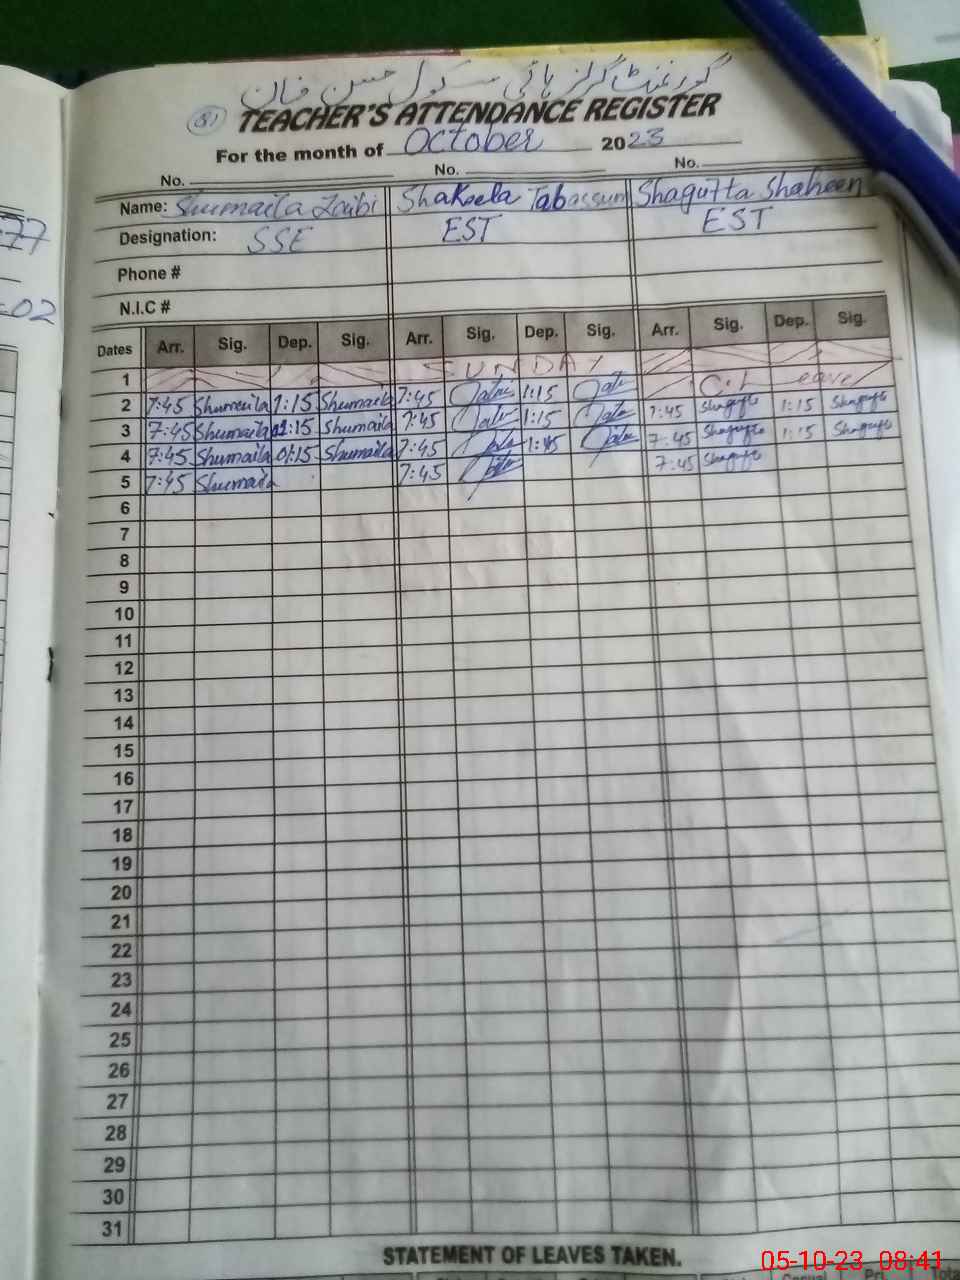 گورنمنٹ گرلز ہائی سکول حسن خان
81 TEACHER'S ATTENDANCE REGISTER
For the month of October 2023
No. No. No.
Name: Shumaila Zaibi Shakeela Tabassum Shagufta Shaheen
Designation: SSE EST EST
Phone #
N.I.C #
Dates Arr. Sig. Dep. Sig. Arr. Sig. Dep. Sig. Arr. Sig. Dep. Sig.
1 SUNDAY
2 7:45 Shumaila 1:15 Shumaila 7:45 1:15 C.L Leave
3 7:45 Shumaila 01:15 Shumaila 7:45 1:15 7:45 Shagufta 1:15 Shagufta
4 7:45 Shumaila 01:15 Shumaila 7:45 7:45 Shagufta 1:15 Shagufta
5 7:45 Shumaila 7:45 7:45 Shagufta
6
7
8
9
10
11
12
13
14
15
16
17
18
19
20
21
22
23
24
25
26
27
28
29
30
31
STATEMENT OF LEAVES TAKEN.
05-10-23 08:41
77
02